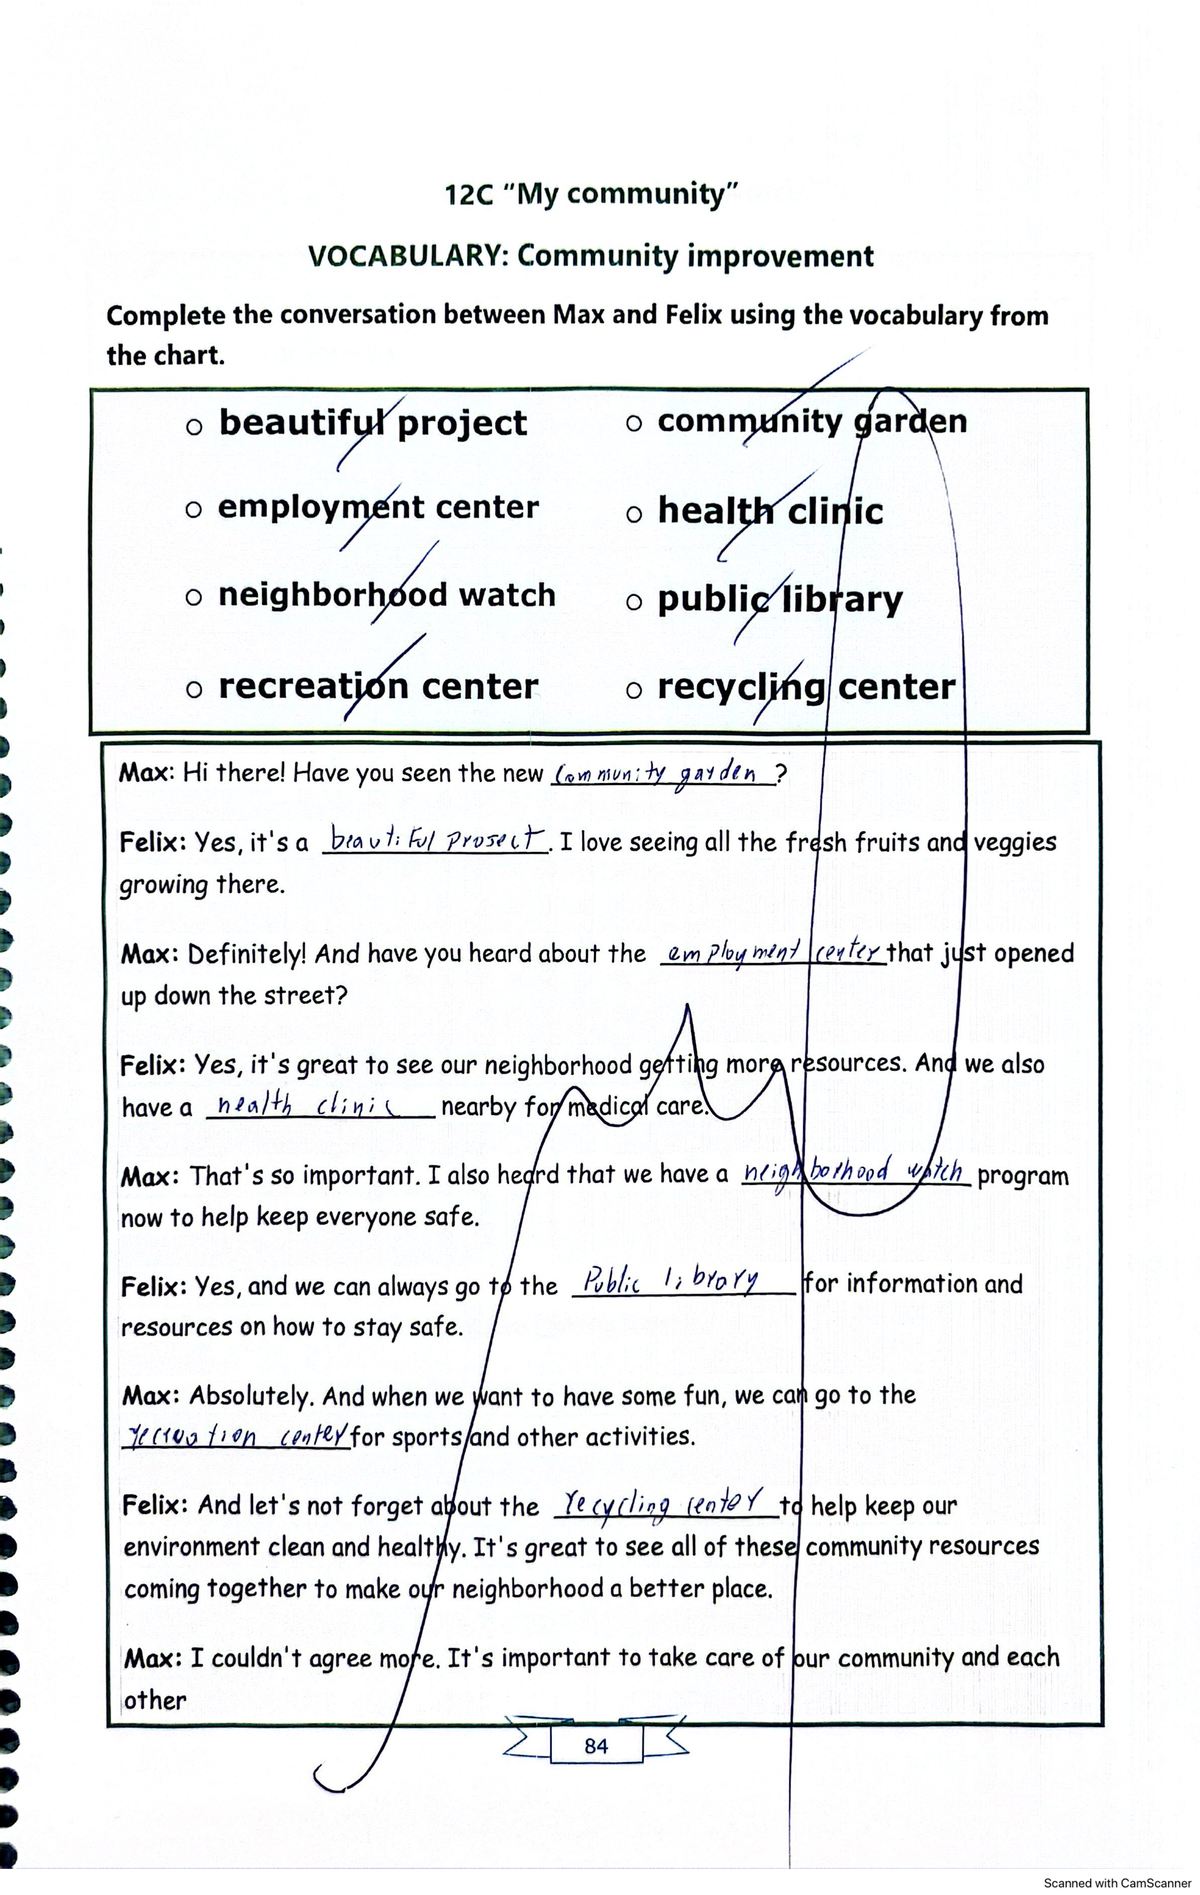 12C "My community"
VOCABULARY: Community improvement
Complete the conversation between Max and Felix using the vocabulary from
the chart.
○ beautiful project ○ community garden
○ employment center ○ health clinic
○ neighborhood watch ○ public library
○ recreation center ○ recycling center
Max: Hi there! Have you seen the new community garden ?
Felix: Yes, it's a beautiful prosect. I love seeing all the fresh fruits and veggies
growing there.
Max: Definitely! And have you heard about the employment center that just opened
up down the street?
Felix: Yes, it's great to see our neighborhood getting more resources. And we also
have a health clinic nearby for medical care.
Max: That's so important. I also heard that we have a neighborhood watch program
now to help keep everyone safe.
Felix: Yes, and we can always go to the Public library for information and
resources on how to stay safe.
Max: Absolutely. And when we want to have some fun, we can go to the
center for sports and other activities.
Felix: And let's not forget about the recycling center to help keep our
environment clean and healthy. It's great to see all of these community resources
coming together to make our neighborhood a better place.
Max: I couldn't agree more. It's important to take care of our community and each
other
84
Scanned with CamScanner